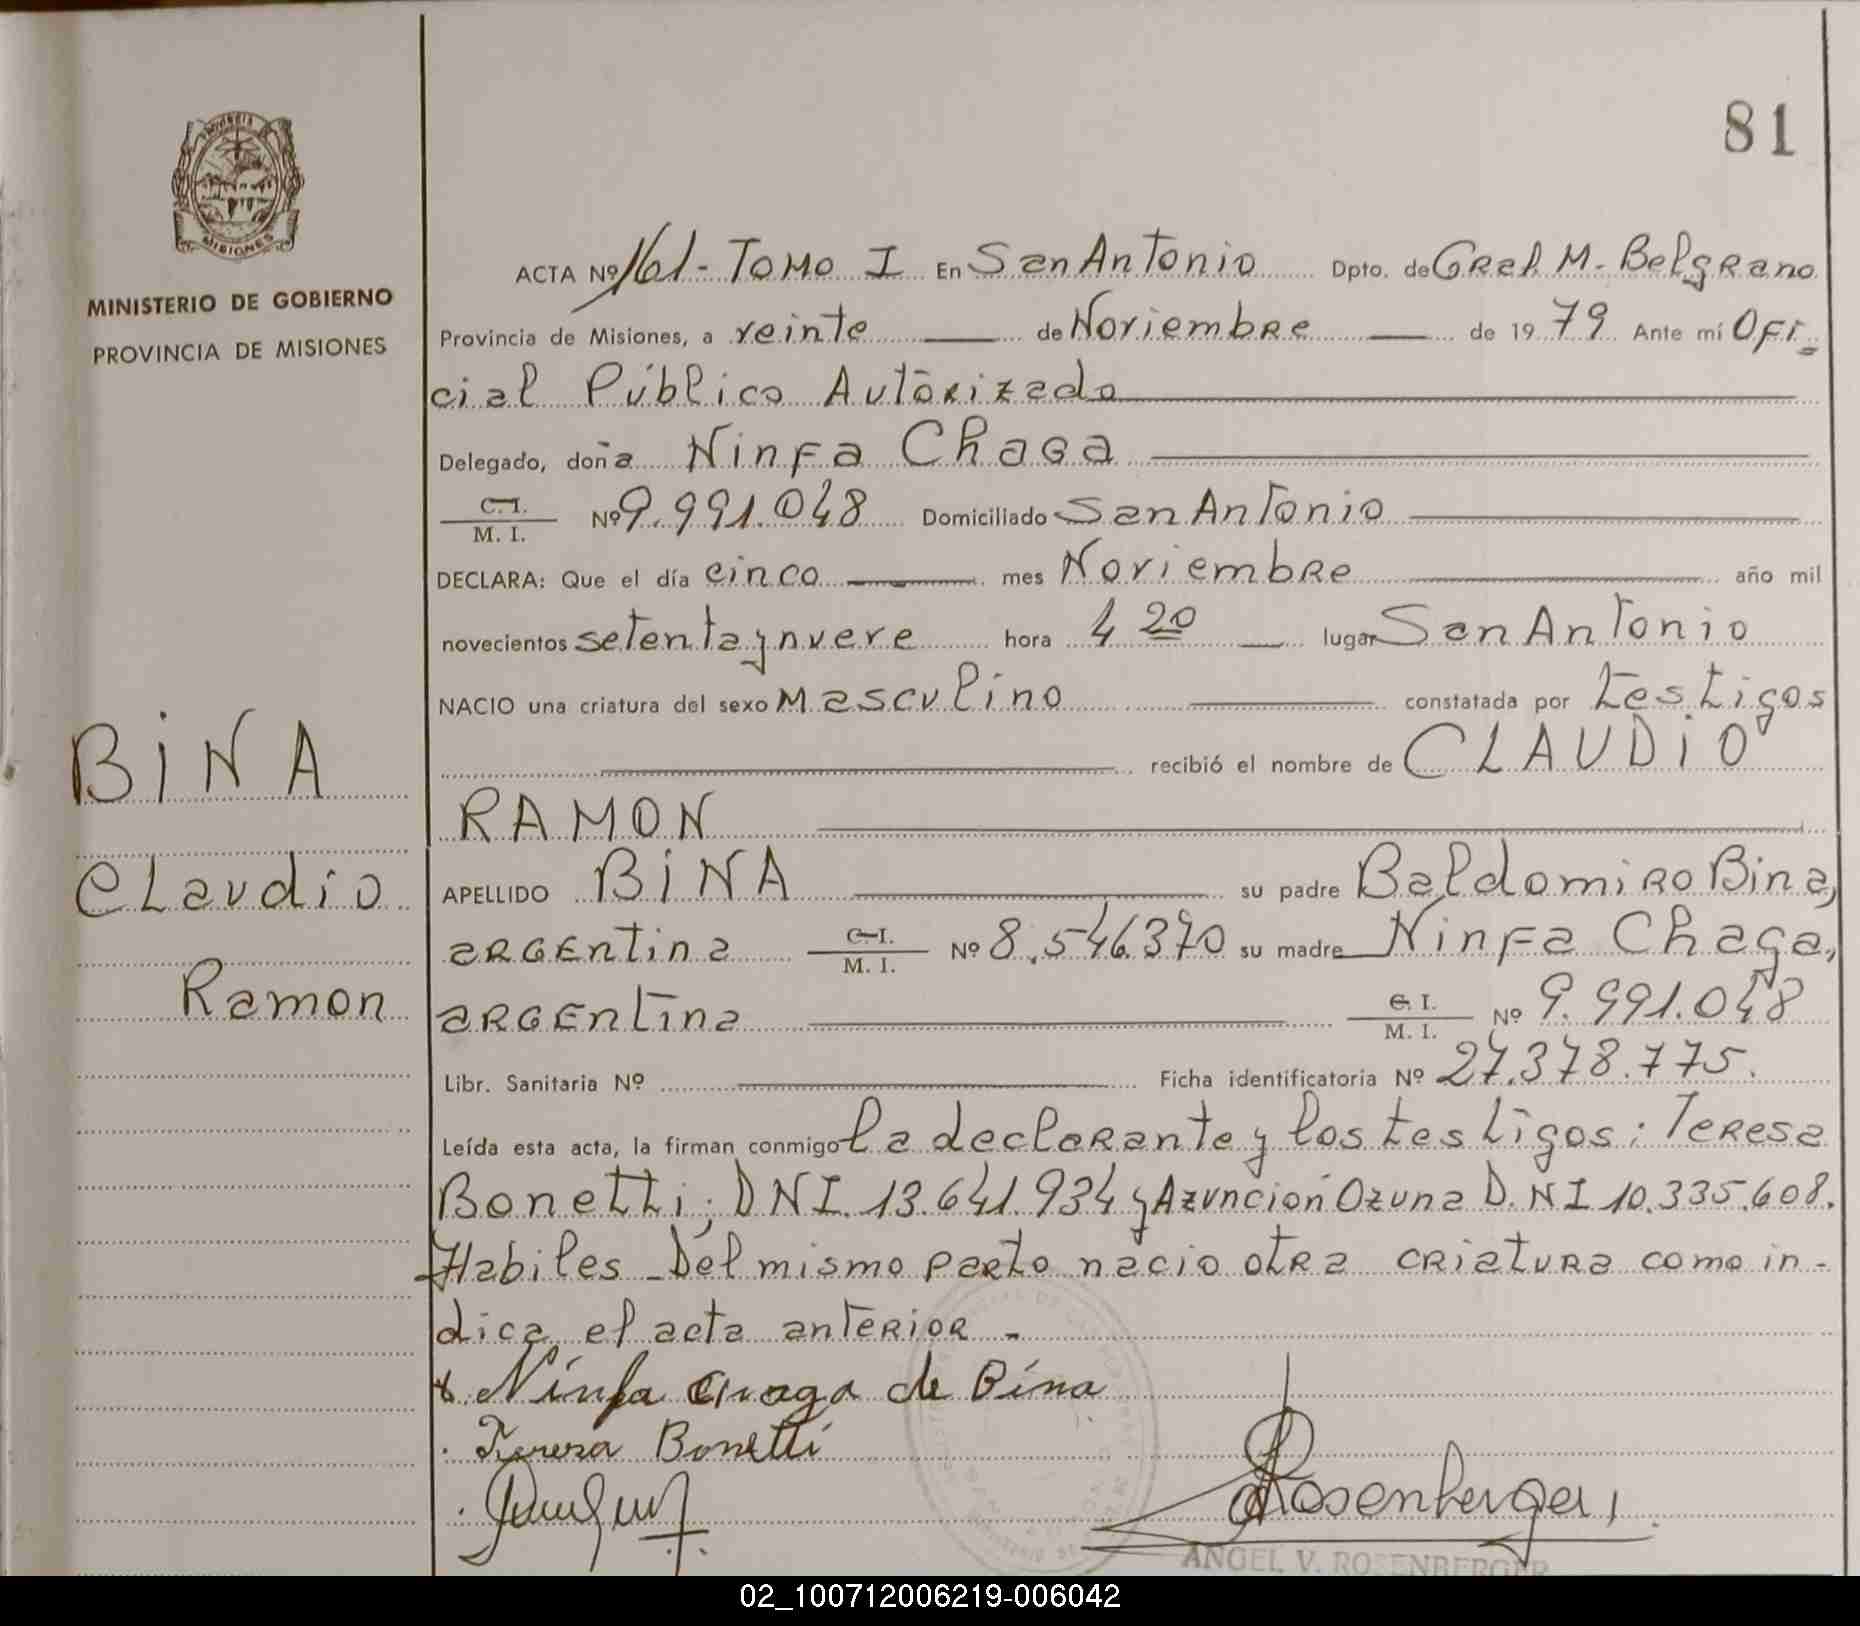 81
PROVINCIA
MISIONES
MINISTERIO DE GOBIERNO
PROVINCIA DE MISIONES
ACTA Nº 161 - Tomo I En San Antonio Dpto. de Gral M. Belgrano
Provincia de Misiones, a veinte de Noviembre de 19 79 Ante mí Ofi-
cial Público Autorizado
Delegado, doña Ninfa Chaga
C. I. / M. I. Nº 9.991.048 Domiciliado San Antonio
DECLARA: Que el día cinco mes Noviembre año mil
novecientos setenta y nueve hora 4 20 lugar San Antonio
NACIO una criatura del sexo Masculino constatada por testigos
recibió el nombre de CLAUDIO
RAMON
BINA
Claudio
Ramon
APELLIDO BINA su padre Baldomiro Bina,
argentina C. I. / M. I. Nº 8.546.370 su madre Ninfa Chaga,
argentina C. I. / M. I. Nº 9.991.048
Libr. Sanitaria Nº Ficha identificatoria Nº 27.378.775.
Leída esta acta, la firman conmigo la declarante y los testigos: Teresa
Bonetti; DNI. 13.641.934 y Azunción Ozuna D.NI 10.335.608.
Habiles - Del mismo parto nacio otra criatura como in-
dica el acta anterior -
x Ninfa Chaga de Bina
Teresa Bonetti
Rosenberger
ANGEL V. ROSENBERGER
02_100712006219-006042